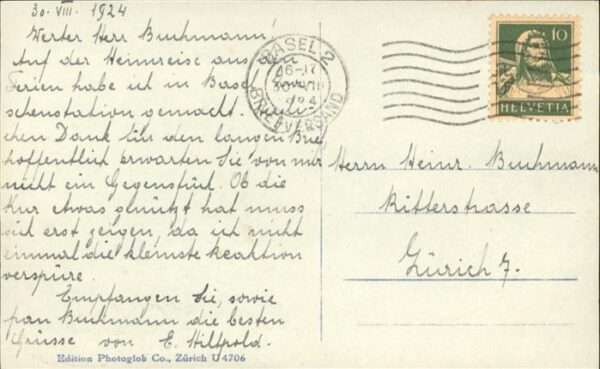 30. VIII. 1924
Werter Herr Buchmann!
Auf der Heimreise aus den
Ferien habe ich in Basel
schenstation gemacht.
chen Dank für den langen Brief
hoffentlich erwarten Sie von mir
nicht ein Gegenstück. Ob die
Kur etwas genützt hat muss
sich erst zeigen, da ich nicht
einmal die kleinste Reaktion
verspüre.
Empfangen Sie, sowie
Frau Buchmann die besten
Grüsse von E. Hiltpold.
Edition Photoglob Co., Zürich U 4706
BASEL 2
16-17
30 VIII
BRIEFVERSAND
10
HELVETIA
Herrn Heinr. Buchmann
Ritterstrasse
Zürich 7.